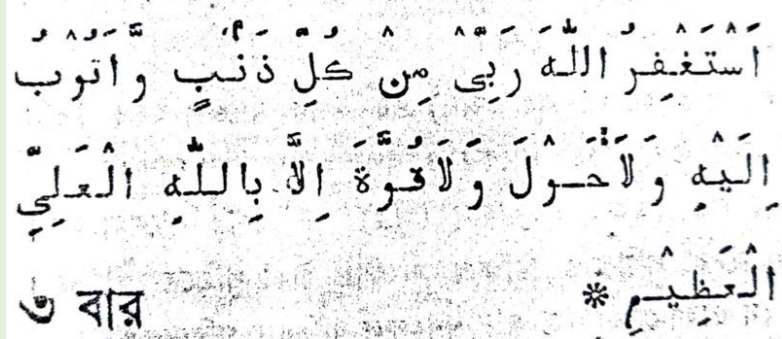 اَسْتَغْفِرُ اللّٰهَ رَبِّىْ مِنْ كُلِّ ذَنْۢبٍ وَّاَتُوْبُ
اِلَيْهِ وَلَاحَوْلَ وَلَاقُوَّةَ اِلَّا بِاللّٰهِ الْعَلِىِّ
الْعَظِيْمِ * ৩ বার